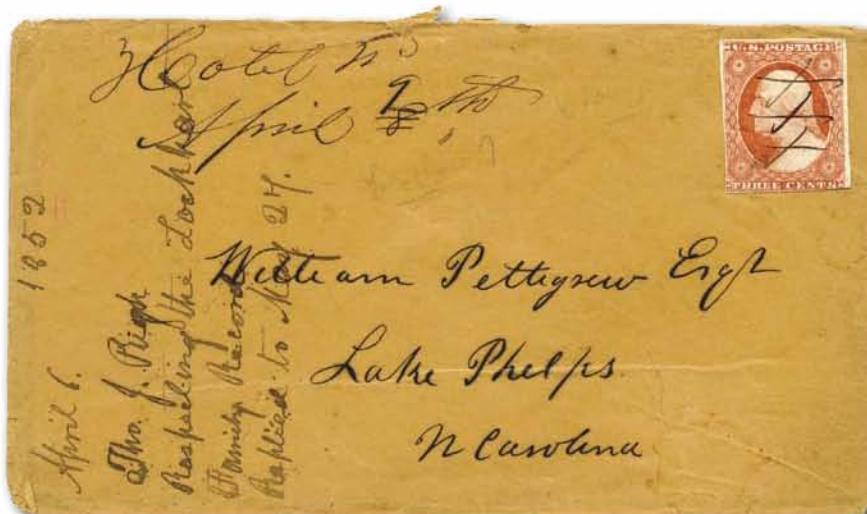 Hotel
April 9 th
U.S. POSTAGE
THREE CENTS
William Pettigrew Esqt
Lake Phelps
N Carolina
April 6. 1852
Tho. J.
Respecting the Lockhart
Family Record
Replied to May 27.